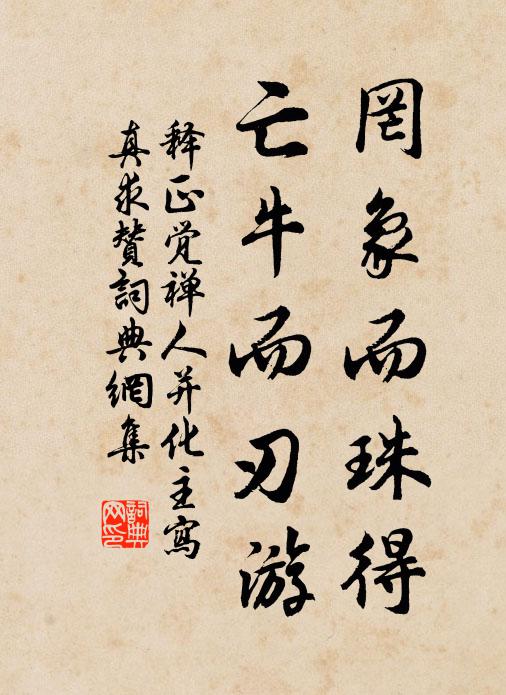 罔象而珠得
亡牛而刃游
释正觉禅人并化主寫
真求赞詞典網集
詞典
网印